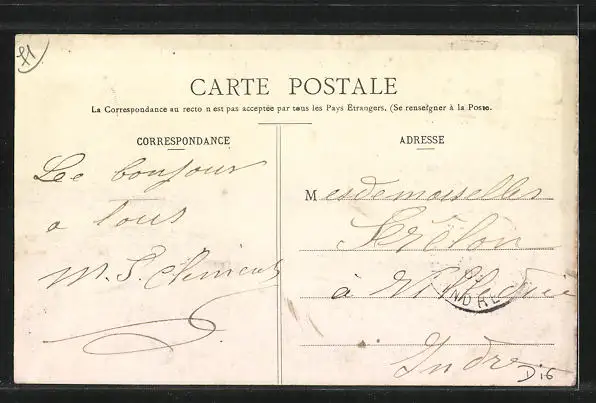 f1
CARTE POSTALE
La Correspondance au recto n'est pas acceptée par tous les Pays Etrangers. (Se renseigner à la Poste.
CORRESPONDANCE
Le bonjour
a tous
M. S. Clément
ADRESSE
Mesdemoiselles
à
INDRE
Indre
D16